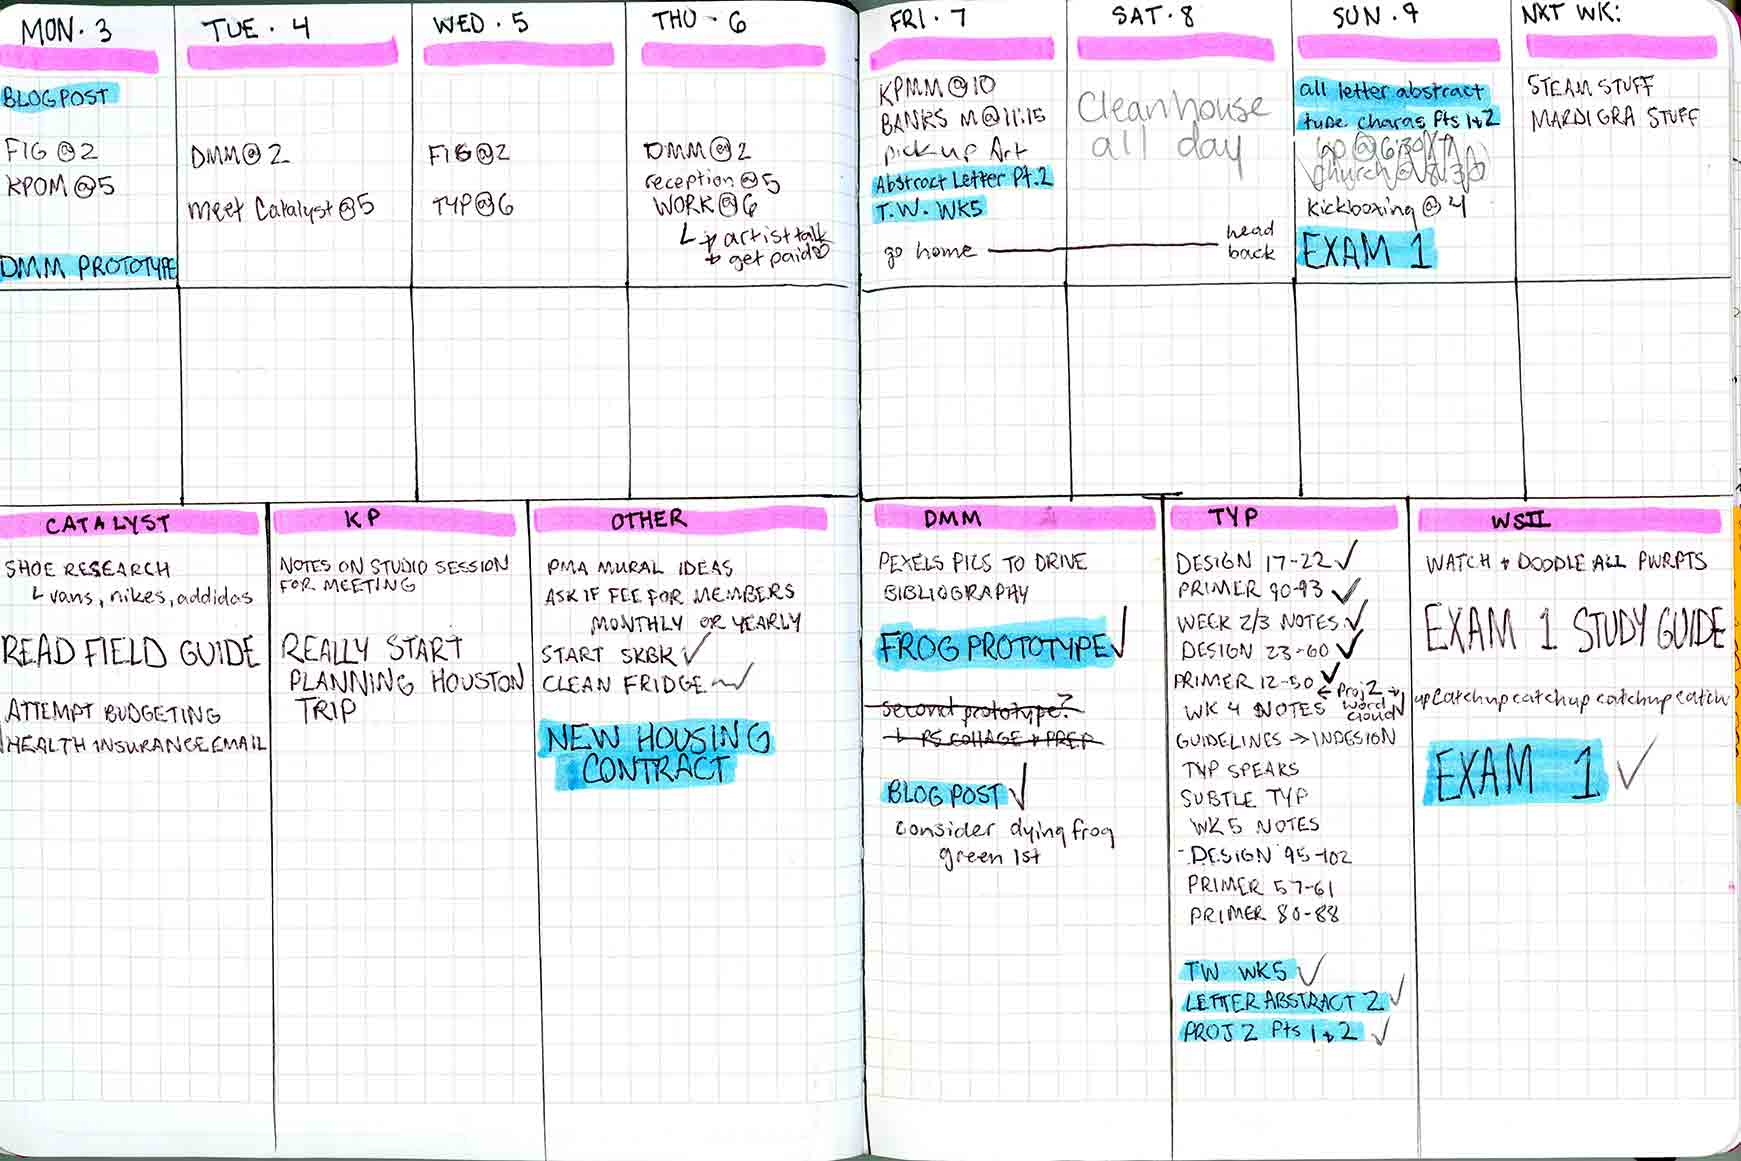 MON. 3
BLOG POST
FIG @ 2
KPOM @ 5
DMM PROTOTYPE
TUE. 4
DMM @ 2
meet Catalyst @ 5
WED. 5
FIG @ 2
TYP @ 6
THU - 6
DMM @ 2
reception @ 5
WORK @ 6
↳ artist talk
get paid
FRI. 7
KPMM @ 10
BANKS M @ 11:15
pick up Art
Abstract Letter Pt. 2
T.W. WK5
go home
head
back
SAT. 8
Clean house
all day
SUN. 9
all letter abstract
Pts 1+2
@ 6:30
church @ 8:30
kickboxing @ 4
EXAM 1
NXT WK:
STEAM STUFF
MARDI GRA STUFF
CATALYST
SHOE RESEARCH
↳ vans, nikes, addidas
READ FIELD GUIDE
ATTEMPT BUDGETING
HEALTH INSURANCE EMAIL
KP
NOTES ON STUDIO SESSION
FOR MEETING
REALLY START
PLANNING HOUSTON
TRIP
OTHER
PMA MURAL IDEAS
ASK IF FEE FOR MEMBERS
MONTHLY OR YEARLY
START SKBK ✓
CLEAN FRIDGE ✓
NEW HOUSING
CONTRACT
DMM
PEXELS PICS TO DRIVE
BIBLIOGRAPHY
FROG PROTOTYPE ✓
second prototype?
↳ PS COLLAGE + PREP
BLOG POST ✓
consider dying frog
green 1st
TYP
DESIGN 17-22 ✓
PRIMER 90-93 ✓
WEEK 2/3 NOTES ✓
DESIGN 23-60 ✓
PRIMER 12-50 ✓
WK 4 NOTES ← Proj 2
word
cloud
GUIDELINES → INDESIGN
TYP SPEAKS
SUBTLE TYP
WK 5 NOTES
- DESIGN 95-102
PRIMER 57-61
PRIMER 80-88
TW WK5 ✓
LETTER ABSTRACT 2 ✓
PROJ 2 Pts 1+2 ✓
WSII
WATCH + DOODLE ALL PWRPTS
EXAM 1 STUDY GUIDE
up catchup catchup catchup catchup
EXAM 1 ✓